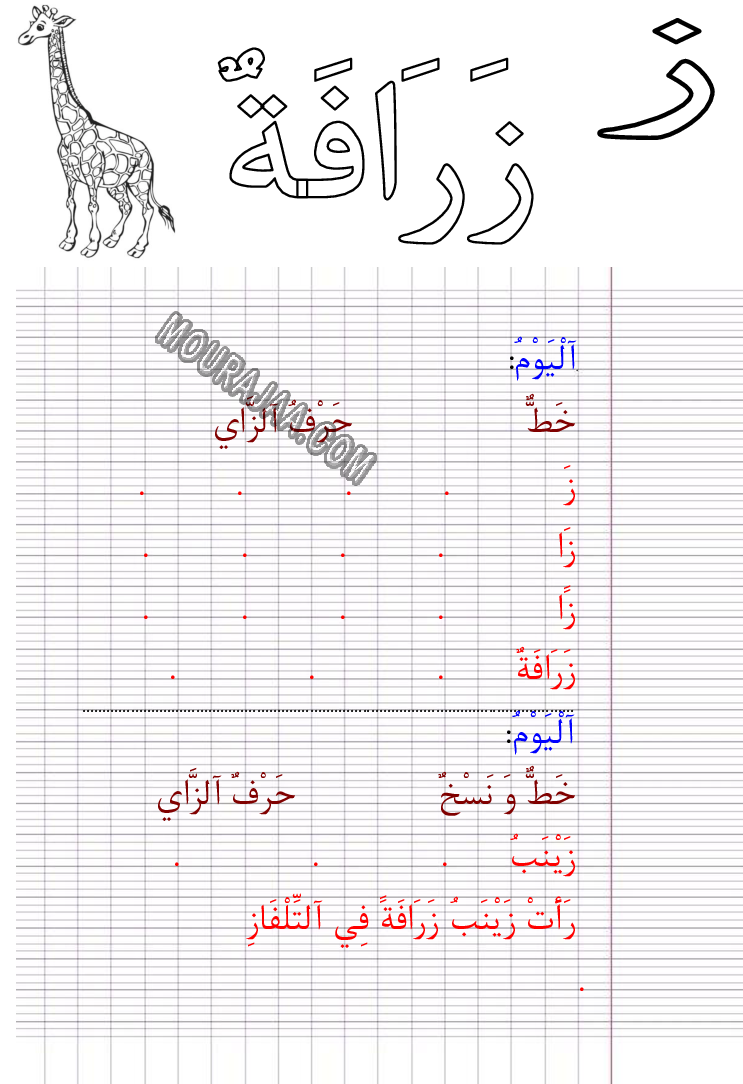 ز
زَرَافَةٌ
MOURAJAA.COM
اَلْيَوْمُ:
خَطٌّ حَرْفُ اَلزَّاي
زَ . . . .
زَا . . . .
زًا . . . .
زَرَافَةٌ . . .
اَلْيَوْمُ:
خَطٌّ وَ نَسْخٌ حَرْفٌ اَلزَّاي
زَيْنَبُ . . .
رَأَتْ زَيْنَبُ زَرَافَةً فِي اَلتِّلْفَازِ
.